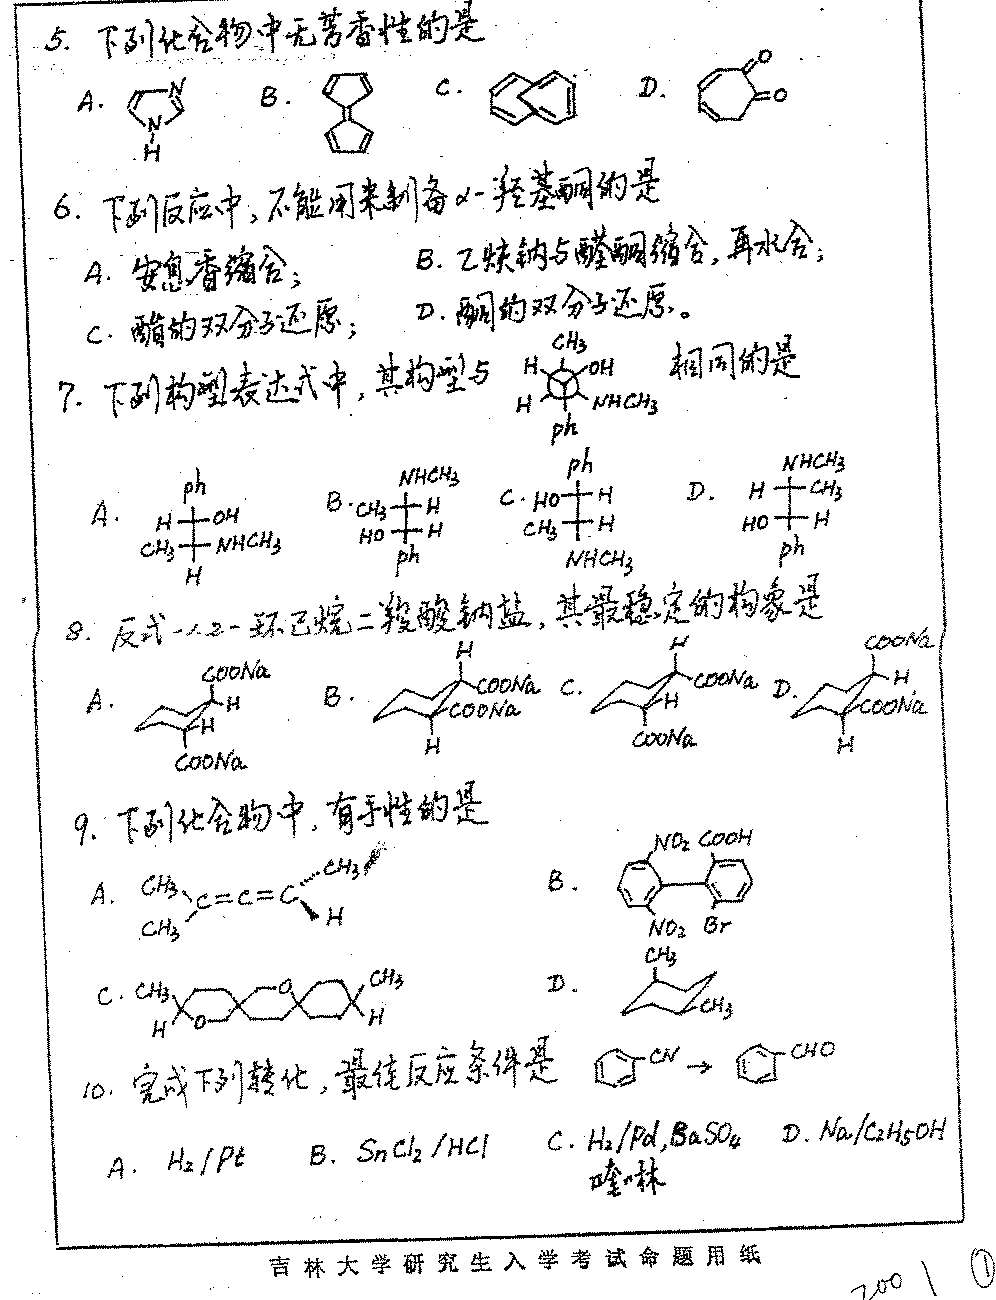 5. 下列化合物中无芳香性的是
A. N N H B. C. D. O O
6. 下列反应中,不能用来制备α-羟基酮的是
A. 安息香缩合; B. 乙炔钠与醛酮缩合,再水合;
C. 酯的双分子还原; D. 酮的双分子还原。
7. 下列构型表达式中,其构型与 CH3 H OH H NHCH3 ph 相同的是
A. ph H OH CH3 NHCH3 H
B. NHCH3 CH3 H HO H ph
C. ph HO H CH3 H NHCH3
D. NHCH3 H CH3 HO H ph
8. 反式-1,2-环己烷二羧酸钠盐,其最稳定的构象是
A. COONa H H COONa
B. H COONa COONa H
C. H COONa H COONa
D. COONa H COONa H
9. 下列化合物中,有手性的是
A. CH3 CH3 C=C=C CH3 H
B. NO2 COOH NO2 Br
C. CH3 H O O CH3 H
D. CH3 CH3
10. 完成下列转化,最佳反应条件是 CN → CHO
A. H2/Pt B. SnCl2/HCl C. H2/Pd,BaSO4 D. Na/C2H5OH
喹啉
吉林大学研究生入学考试命题用纸
200 1 ①